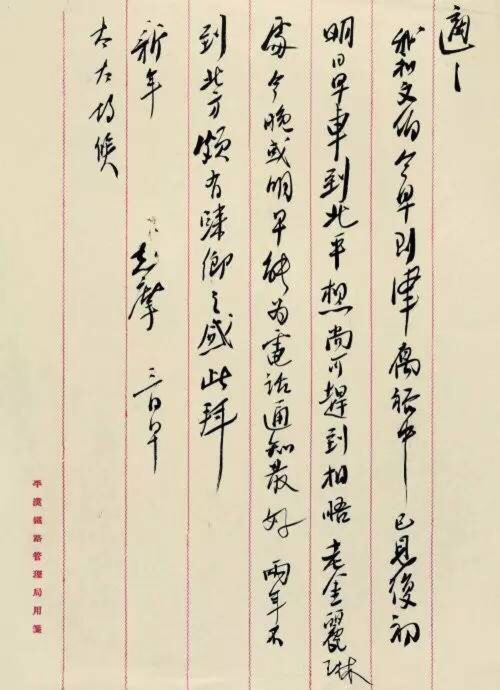 適之
我和文伯今早到津寓裕中已見復初
明日早車到北平想尚可趕到相晤老金麗琳
處今晚或明早能為電話通知最好兩年不
到北方頗有鄉之感此拜
新年 志摩 三日早
太太均候
平漢鐵路管理局用箋